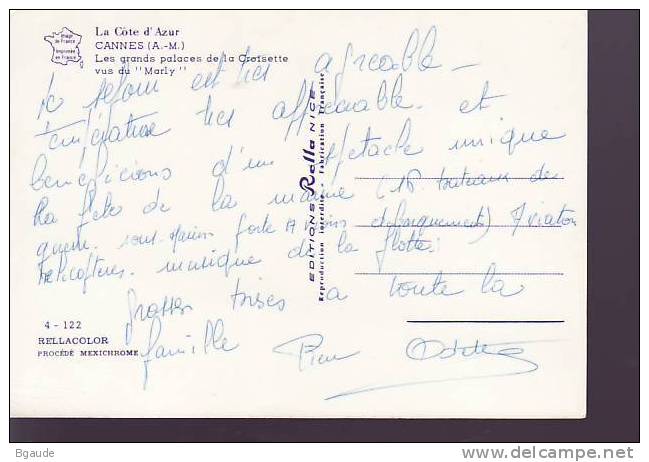 La Côte d'Azur
CANNES (A.-M.)
Les grands palaces de la Croisette
vus du "Marly"
Image de France
Imprimée en France
séjour est très agréable -
température très appréciable et
bénéficions d'un spectacle unique
la fête de la marine (18 bateaux de
guerre sous-marins porte Avions debarquements) Aviation
helicoptères musique de la flotte.
grosses bises a toute la
famille Odette
EDITIONS Rella NICE
Reproduction interdite - Fabrication Française
4 - 122
RELLACOLOR
PROCÉDÉ MEXICHROME
Bgaude
delcampe.net